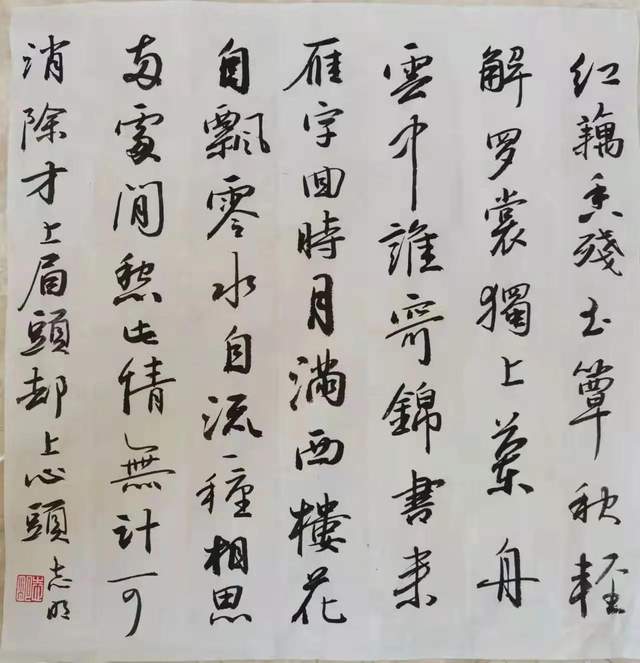 红藕香残玉簟秋轻
解罗裳獨上蘭舟
雲中誰寄錦書来
雁字回時月滿西樓花
自飄零水自流一種相思
両處閒愁此情無計可
消除才上眉頭却上心頭
志明